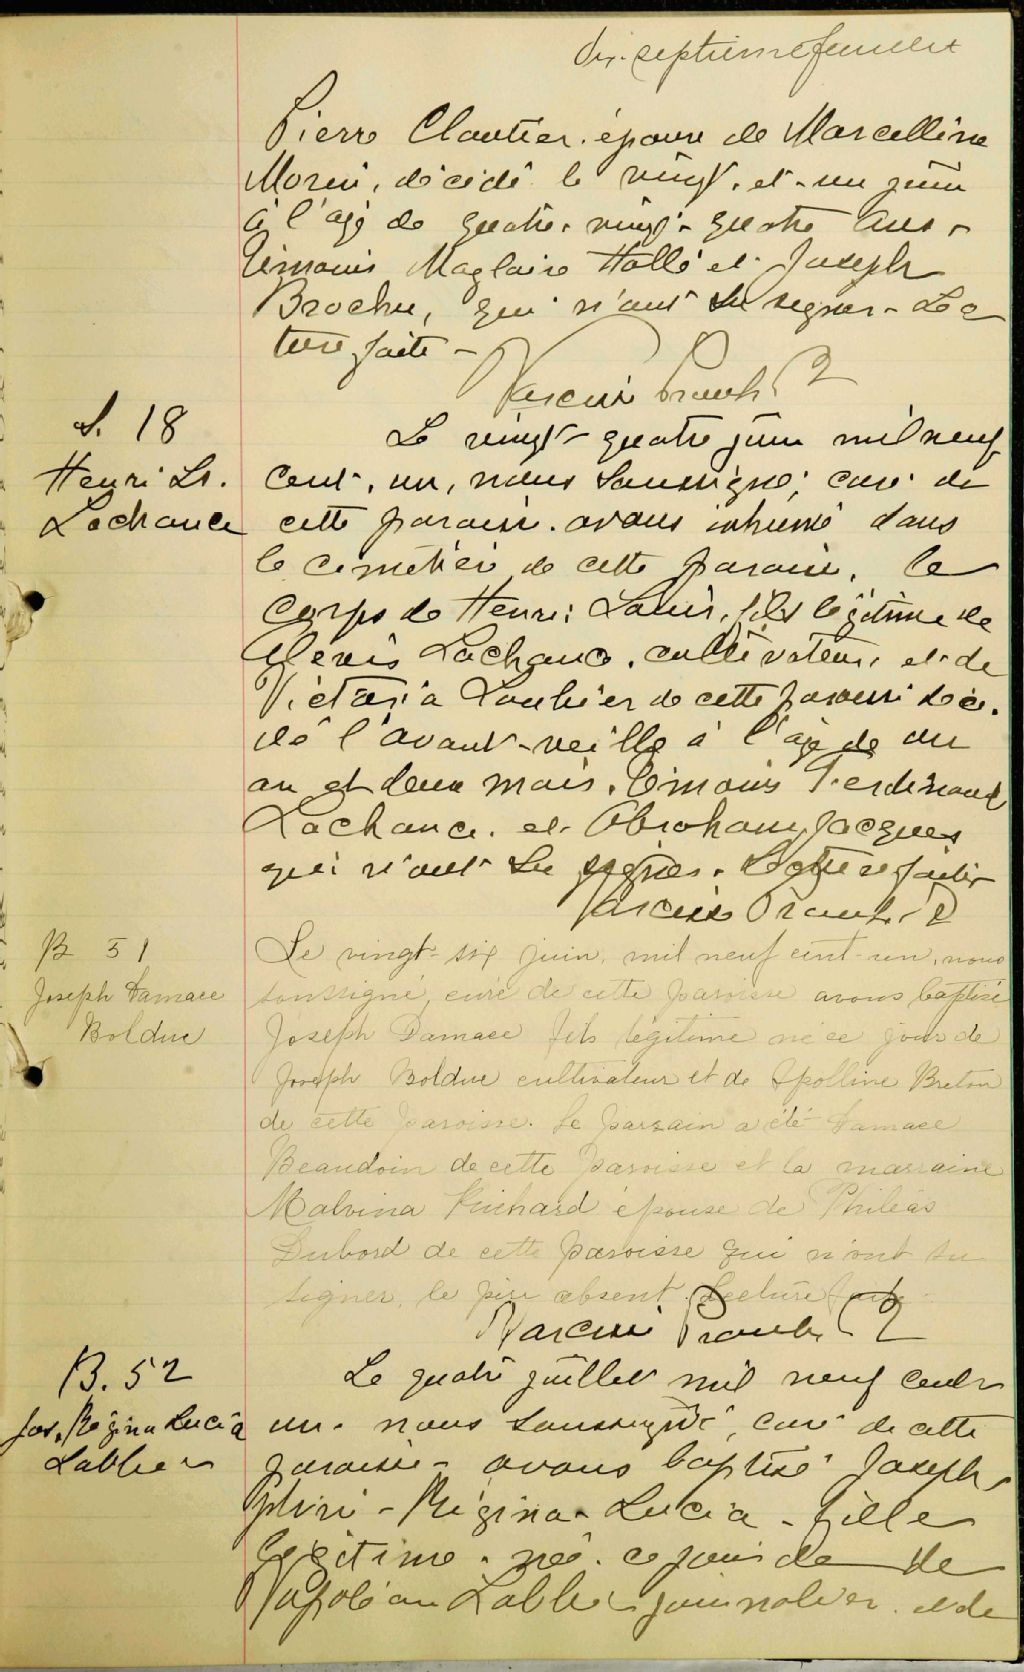 dix-septieme feuillet
Pierre Cloutier. époux de Marcelline
Morin, décédé le vingt. et. un juin
à l'age de quatre. vingt. quatre ans -
Témoins Magloire Hallé et Joseph
Brochu, qui n'ont su signer - Lec
ture faite -
Narcisse Proulx P
S. 18
Henri Ls.
Lachance
Le vingt-quatre juin mil neuf
cent. un, nous soussigné, curé de
cette paroisse. avons inhumé dans
le cimetière de cette paroisse, le
corps de Henri Louis, fils légitime de
Alexis Lachance, cultivateur, et de
Victoria Loubier de cette paroisse décé-
dé l'avant-veille à l'age de un
an et deux mois. Témoins Ferdinand
Lachance. et Abraham Jacques
qui n'ont su signer. Lecture faite
Narcisse Proulx P
B 51
Joseph Damace
Bolduc
Le vingt-six juin, mil neuf cent-un, nous
soussigné, curé de cette paroisse avons baptisé
Joseph Damace fils légitime né ce jour de
Joseph Bolduc cultivateur et de Apolline Breton
de cette paroisse. Le parrain a été Damace
Beaudoin de cette paroisse et la marraine
Malvina Richard épouse de Philéas
Dubord de cette paroisse qui n'ont su
signer, le père absent. Lecture faite.
Narcisse Proulx P
B. 52
Jos. Régina Lucia
Labbée
Le quatre juillet mil neuf cent
un. nous soussigné, curé de cette
paroisse - avons baptisé Joseph-
phine - Régina - Lucia - fille
légitime. née. ce jour de de
Napoléon Labbée journalier. et de